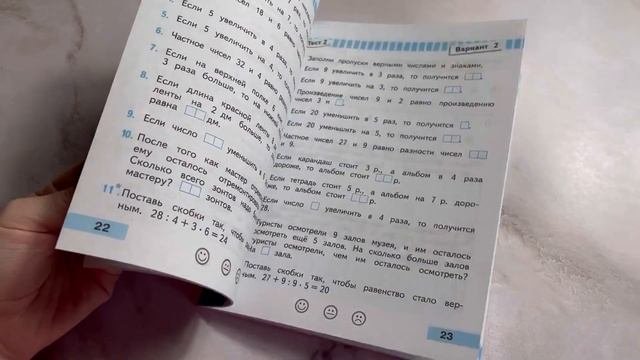 5. Если 5 увеличить в 4 раза,
Если 5 увеличить на 4, то
6. Частное чисел 32 и 4 равно
7. Если на верхней полке 5
3 раза больше, то на
8. Если длина красной ленты
ленты на 2 дм больше, то
равна дм.
9. Если число уменьшить в
10. После того как мастер
ему осталось отремонтировать
Сколько всего зонтов надо
мастеру? зонтов.
11* Поставь скобки так, чтобы
ным. 28 : 4 + 3 · 6 = 24
22
Тест 2
Вариант 2
Заполни пропуски верными числами и знаками.
Если 9 увеличить в 3 раза, то получится
Если 9 увеличить на 3, то получится
Произведение чисел 9 и 2 равно произведению
чисел 3 и
Если 20 уменьшить в 5 раз, то получится
Если 20 уменьшить на 5, то получится
Частное чисел 27 и 9 равно разности чисел
и 9.
Если карандаш стоит 3 р., а альбом в 4 раза
дороже, то альбом стоит р.
Если тетрадь стоит 5 р., а альбом на 7 р. доро-
же, то альбом стоит р.
Если число увеличить в 4 раза, то получится
28.
Туристы осмотрели 9 залов музея, и им осталось
осмотреть ещё 5 залов. На сколько больше залов
туристы осмотрели, чем им осталось осмотреть?
На зала.
Поставь скобки так, чтобы равенство стало вер-
ным. 27 + 9 : 9 · 5 = 20
23